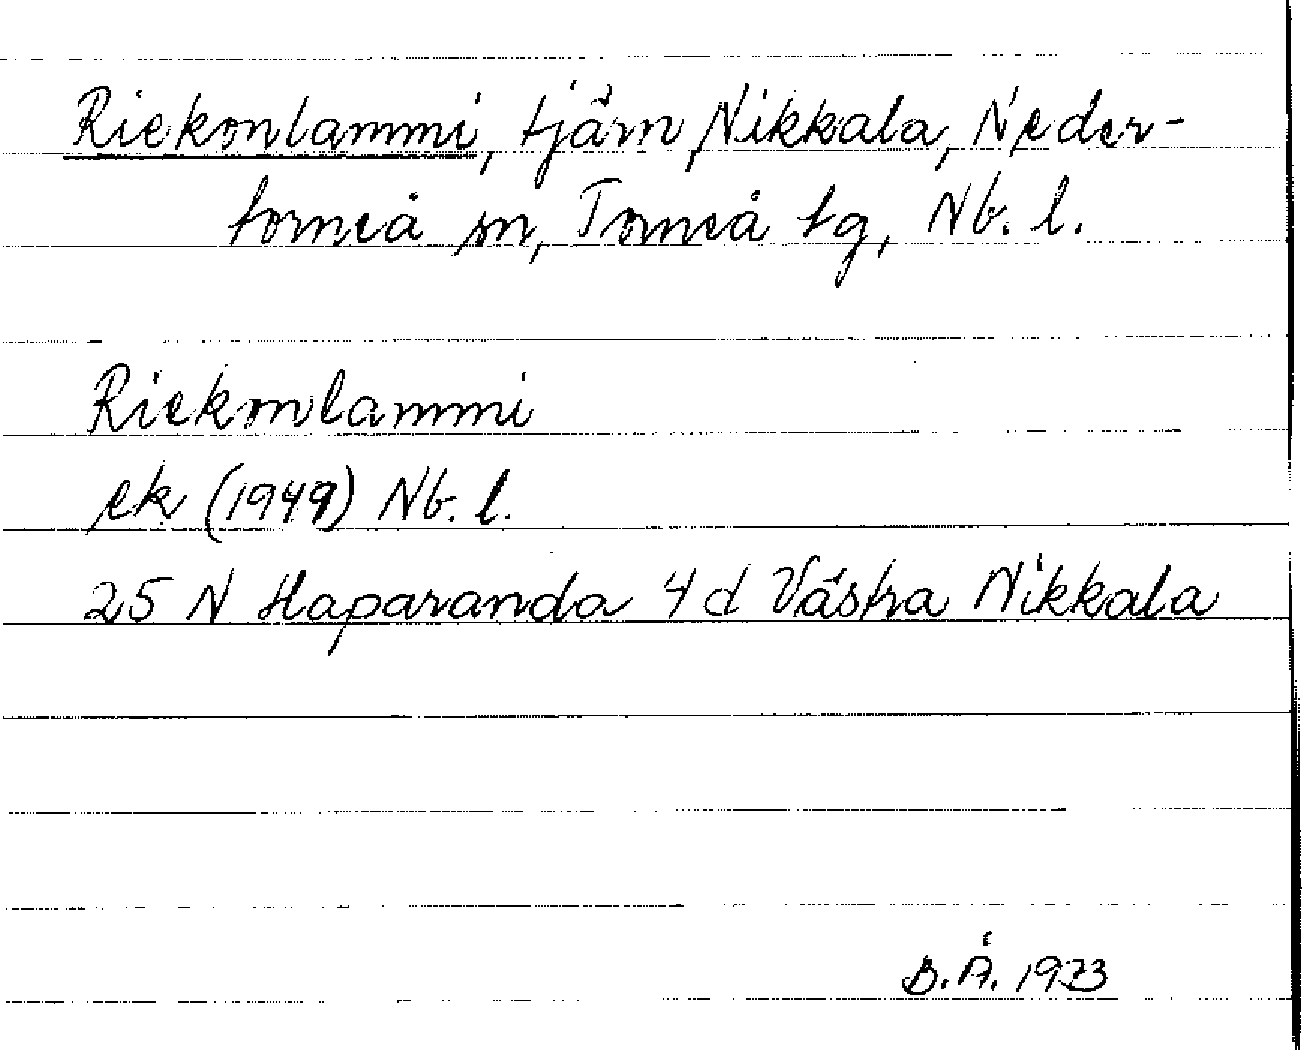 Riekonlammi, tjärn, Nikkala, Neder-
torneå sn, Torneå tg, Nb. l.
Riekonlammi
ek (1949) Nb. l.
25 N Haparanda 4 d Västra Nikkala
B.Å. 1973